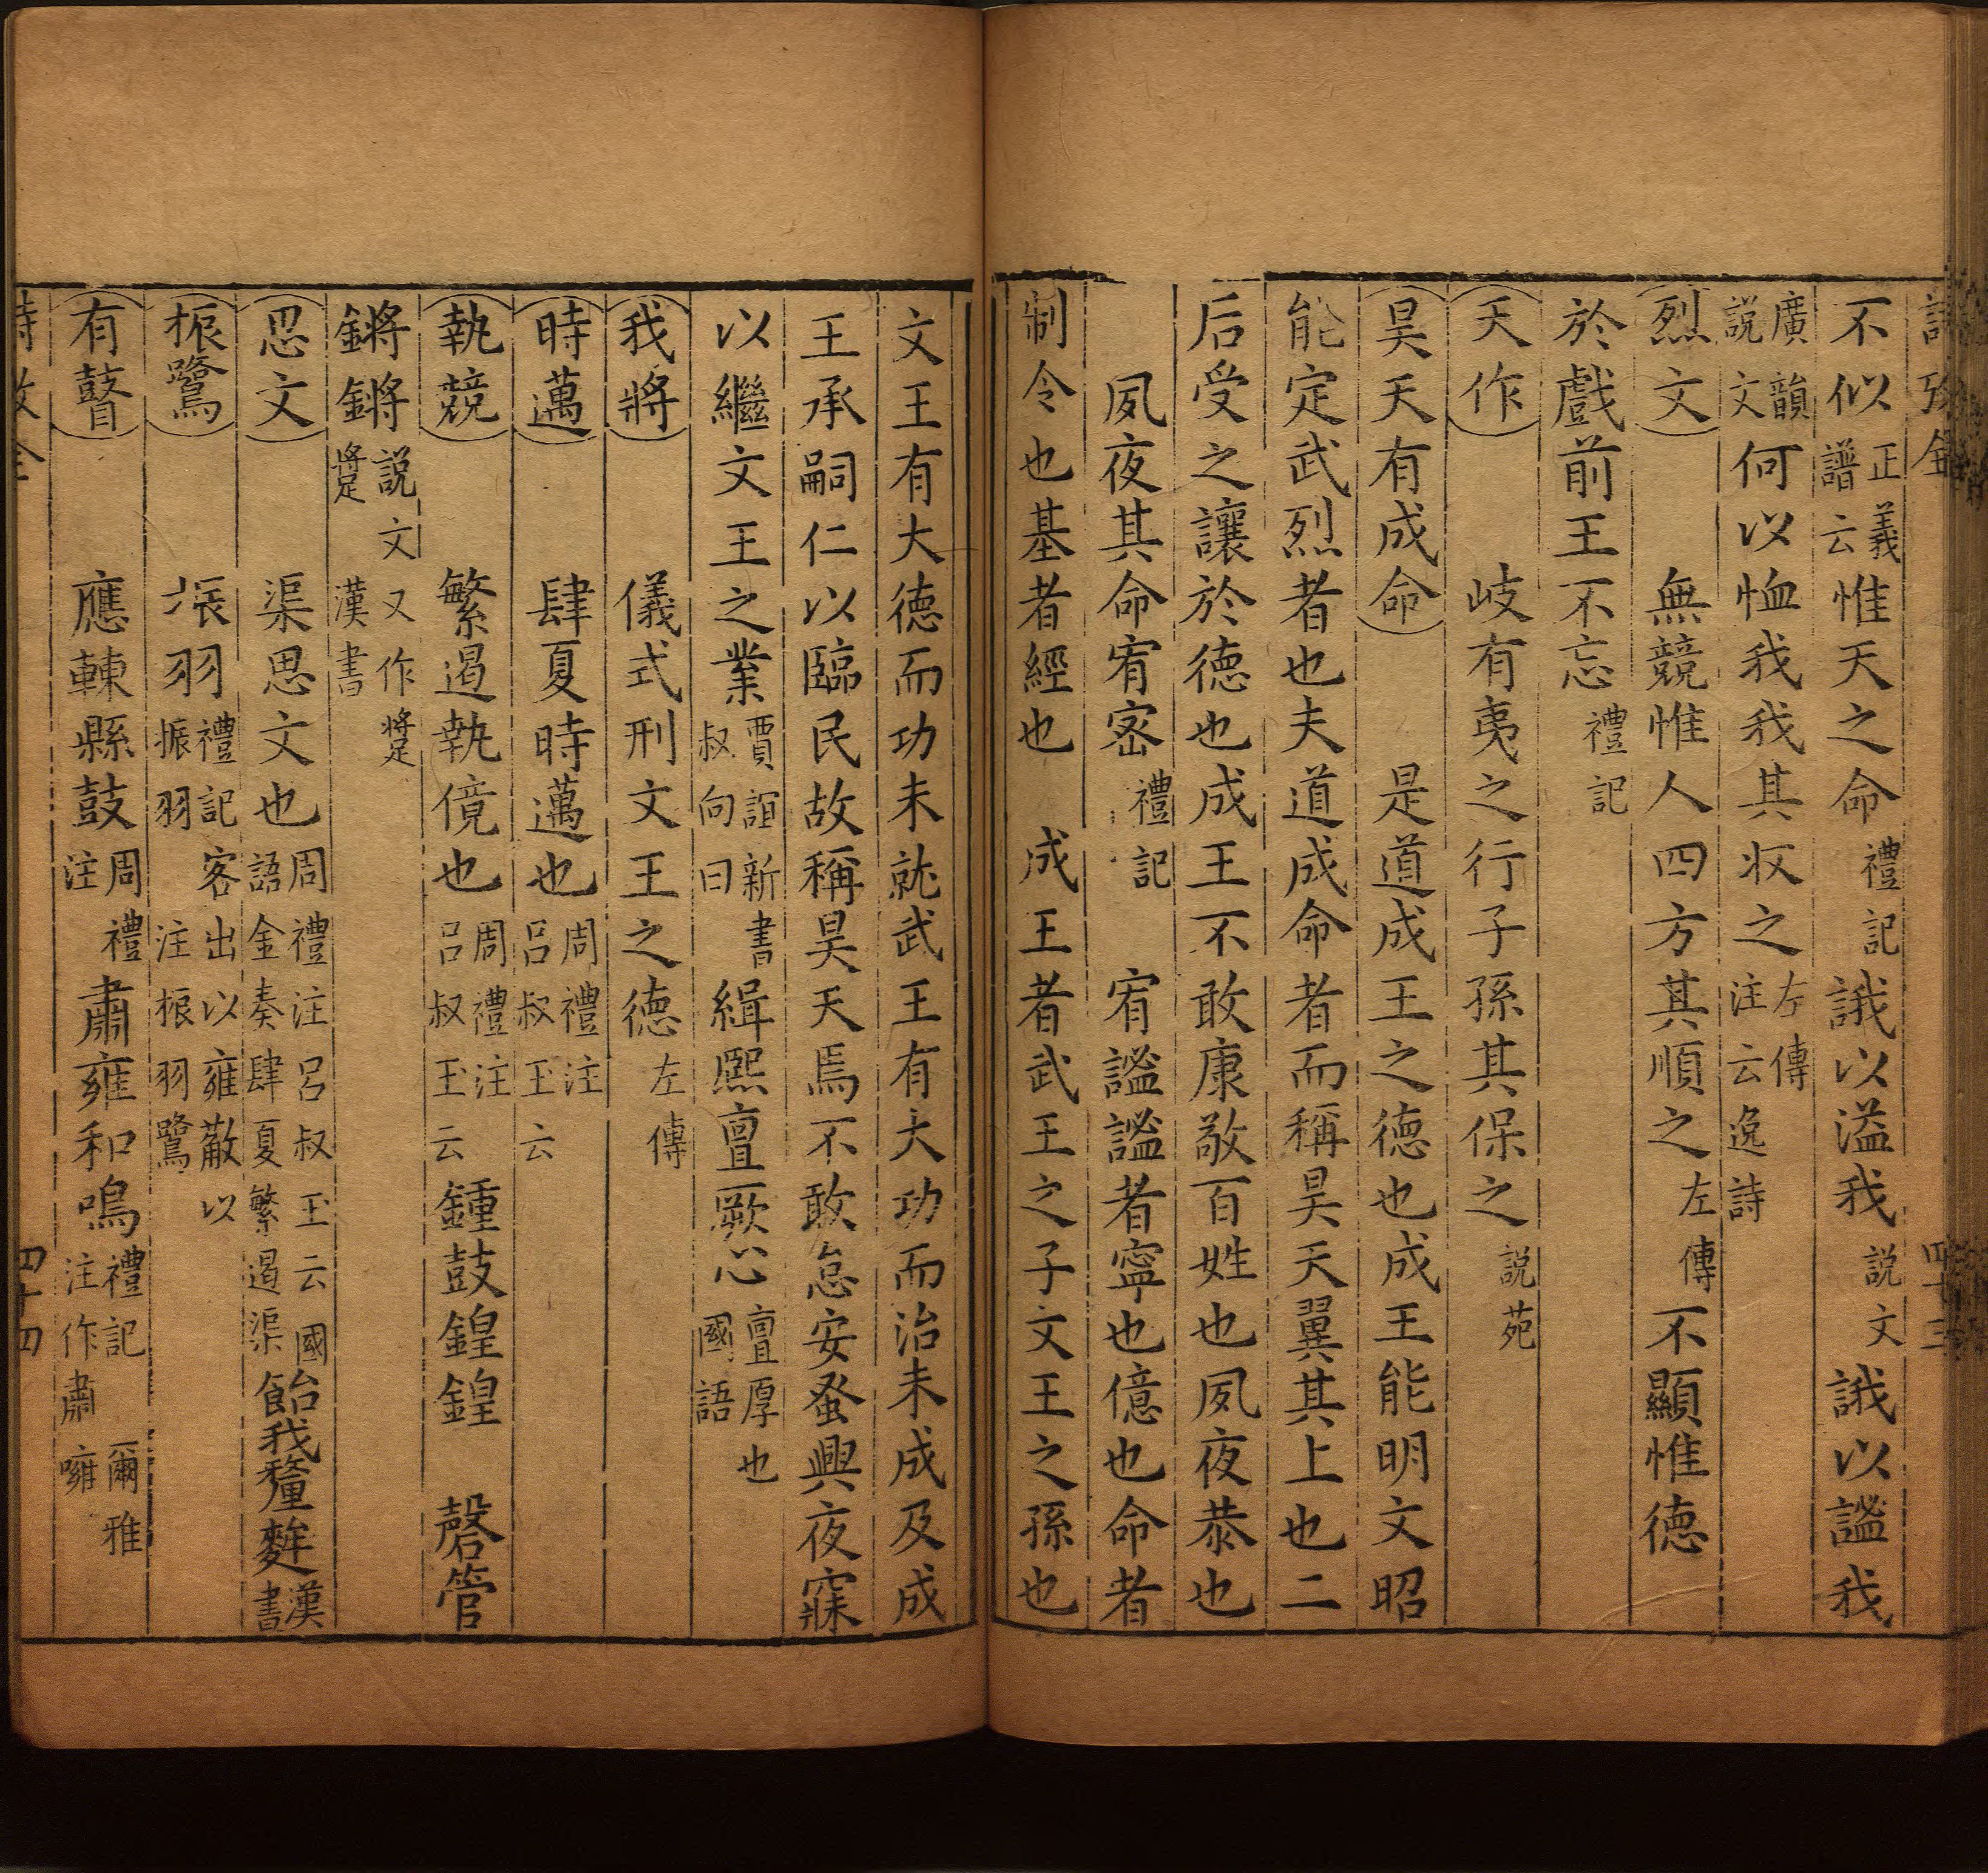 不似正義譜云惟天之命禮記誐以溢我說文誐以謐我
廣韻說文何以恤我我其収之左傳注云逸詩
烈文無競惟人四方其順之左傳不顯惟德
於戲前王不忘禮記
天作岐有夷之行子孫其保之說苑
昊天有成命是道成王之德也成王能明文昭
能定武烈者也夫道成命者而稱昊天翼其上也二
后受之讓於德也成王不敢康敬百姓也夙夜恭也
夙夜其命宥宻禮記宥謐謐者寧也億也命者
制令也基者經也成王者武王之子文王之孫也
文王有大德而功未就武王有大功而治未成及成
王承嗣仁以臨民故稱昊天焉不敢怠安蚤興夜寐
以繼文王之業賈誼新書叔向曰緝熙亶厥心亶厚也國語
我將儀式刑文王之德左傳
時邁肆夏時邁也周禮注呂叔玉云
執競繁遏執傹也周禮注呂叔玉云鍾鼓鍠鍠磬管
鏘鏘說文又作蹡蹩漢書
思文渠思文也周禮注呂叔玉云國語金奏肆夏繁遏渠飴我釐麰漢書
振鷺振羽禮記客出以雍敵以振羽注振羽鷺
有瞽應朄縣鼓周禮注肅雍和鳴禮記注作肅噰爾雅
詩攷全
四十三
四十四